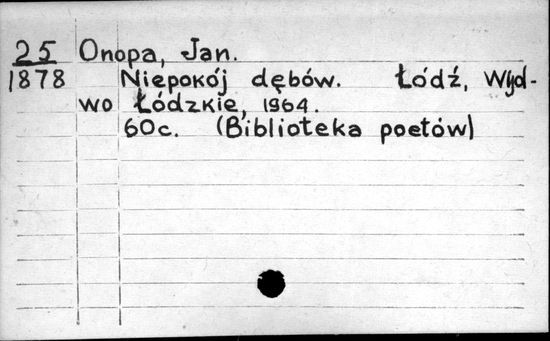 25 Onopa, Jan.
1878 Niepokój dębów. Łódź, Wyd-
wo Łódzkie, 1964.
60c. (Biblioteka poetów)